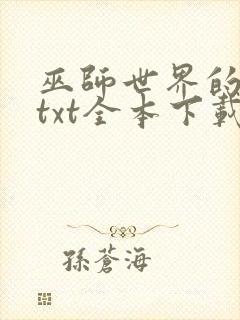 巫師世界的
txt全本下載
孫蒼海